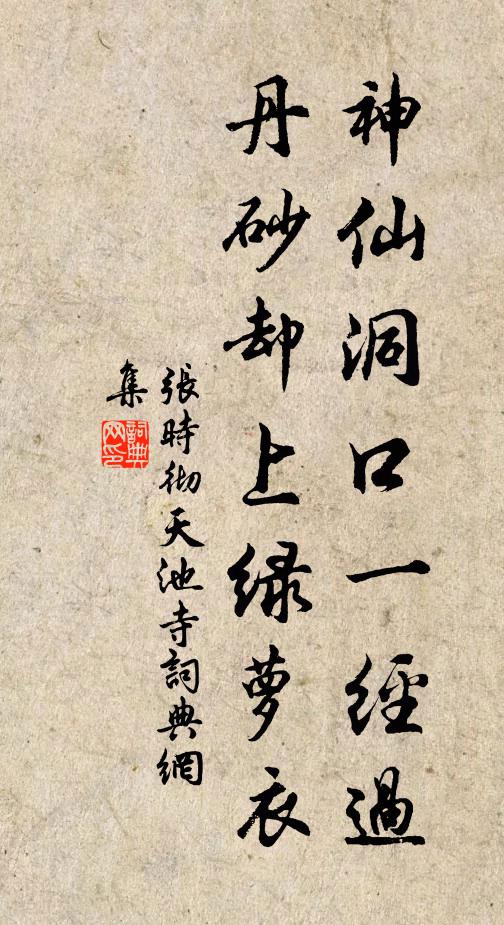 神仙洞口一經過
丹砂却上綠萝衣
張時彻天池寺詞典網
集
詞典
网印